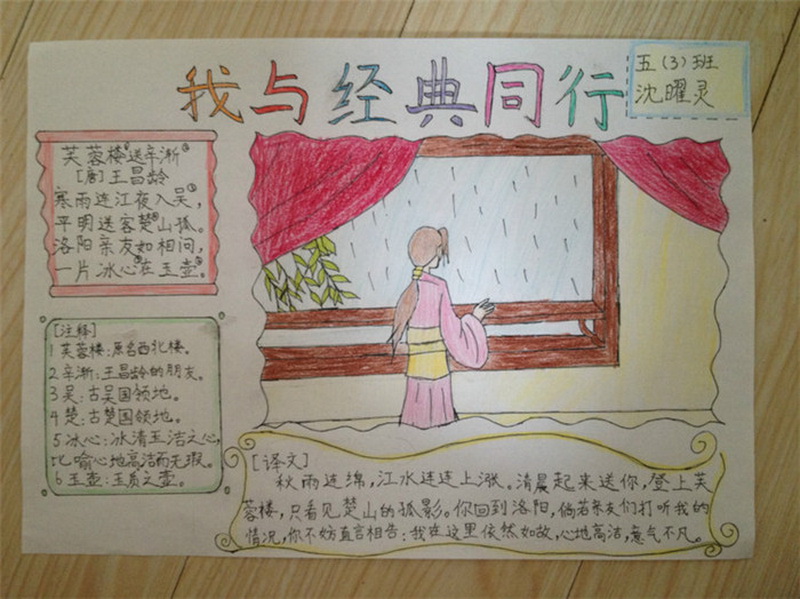 我与经典同行
五(3)班
沈曜灵
芙蓉楼①送辛渐②
[唐]王昌龄
寒雨连江夜入吴③,
平明送客楚④山孤。
洛阳亲友如相问,
一片冰心⑤在玉壶⑥。
[注释]
1 芙蓉楼:原名西北楼。
2 辛渐:王昌龄的朋友。
3 吴:古吴国领地。
4 楚:古楚国领地。
5 冰心:冰清玉洁之心,
比喻心地高洁而无瑕。
6 玉壶:玉质之壶。
[译文]
秋雨连绵,江水连连上涨。清晨起来送你,登上芙
蓉楼,只看见楚山的孤影。你回到洛阳,倘若亲友们打听我的
情况,你不妨直言相告:我在这里依然如故,心地高洁,意气不凡。